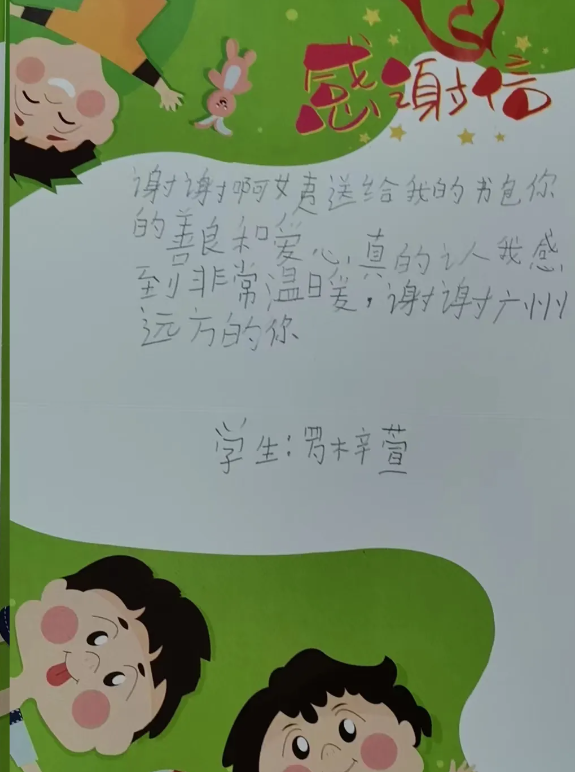 感謝信
谢谢啊姨送给我的书包你
的善良和爱心,真的让人我感
到非常温暖,谢谢广州
远方的你
学生:罗梓萱